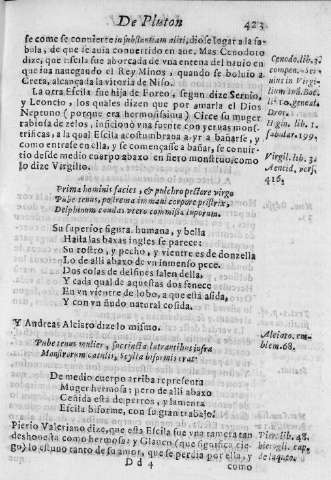 De Pluton 423
se come se conuierte in substantiam aliti, dio se lugar a la fa-
bula, de que se auia conuertido en aue. Mas Cenodoto
dize, que Escila fue ahorcada de vna entena del nauio en
que iua nauegando el Rey Minos, quando se boluio a
Creta, alcançada la vitoria de Niso.
La otra Escila fue hija de Forco, segun dize Seruio,
y Leoncio, los quales dizen que por amarla el Dios
Neptuno (porque era hermosissima) Circe su muger
rabiosa de zelos, inficionò vna fuente con yeruas mons-
trificas, a la qual Escila acostumbraua a yr a bañarse, y
como entrase en ella, y se començase a bañar, se conuir-
tio desde medio cuerpo abaxo en fiero monstruo, como
lo dize Virgilio.
Cenodo. lib. 3.
compen.
uine in Virgil
ium in 6. Boc.
li 10. geneal.
Deor.
Higin. lib. 1.
fabular. 199.
Virgil. lib. 3.
Aeneid, vers.
416.
Prima hominis facies, & pulchro pectore virgo
Pube tenus, postrema immani corpore pristrix,
Delphinum caudas vtero commissa luporum.
Su superior figura humana, y bella
Hasta las baxas ingles se parece:
Su rostro, y pecho, y vientre es de donzella
Lo de alli abaxo de vn inmenso pece.
Dos colas de delfines salen della.
Y cada qual de aquestas dos fenece
En vn vientre de lobo, a que està asida,
Y con vn ñudo natural cosida.
Y Andreas Alciato dize lo mismo.
Alciato. em-
blem. 68.
Pube tenus mulier, succincta latrantibus infra
Monstrorum catulis, Scylla biformis erat.
De medio cuerpo arriba representa
Muger hermosa: pero de alli abaxo
Ceñida està de perros, y lamenta
Escila biforme, con su gran trabajo.
Pierio Valeriano dize, que esta Escila fue vna ramera tan
deshonesta como hermosa: y Glauco (que significa cie-
go) lo estuuo tanto de su amor, que se perdia por ella, y
Pier. lib. 48.
hierogli. cap.
de
D d 4 como